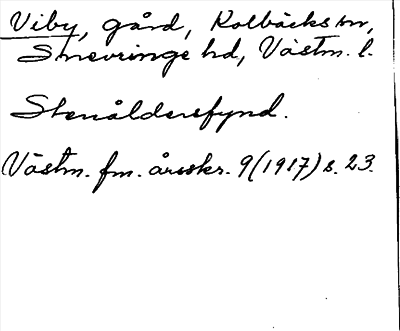 Viby, gård, Kolbäcks sn,
Snevringe hd, Västm. l.
Stenåldersfynd.
Västm. fm. årsskr. 9 (1917) s. 23.